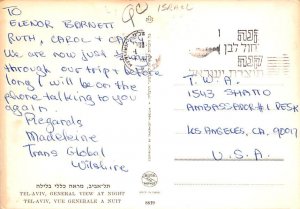 TO
ELENOR BARNETT
RUTH, CAROL + CAR
We are now just
through our trip + before
long I will be on the
phone talking to you
again.
Regards
Madeleine
Trans Global
Wilshire
GC ISRAEL
T.W.A.
1543 SHATTO
AMBASSADOR #1 DESK
LOS ANGELES, CA. 90017
U.S.A.
תל-אביב, מראה כללי בלילה
TEL-AVIV, GENERAL VIEW AT NIGHT
TEL-AVIV, VUE GENERALE A NUIT